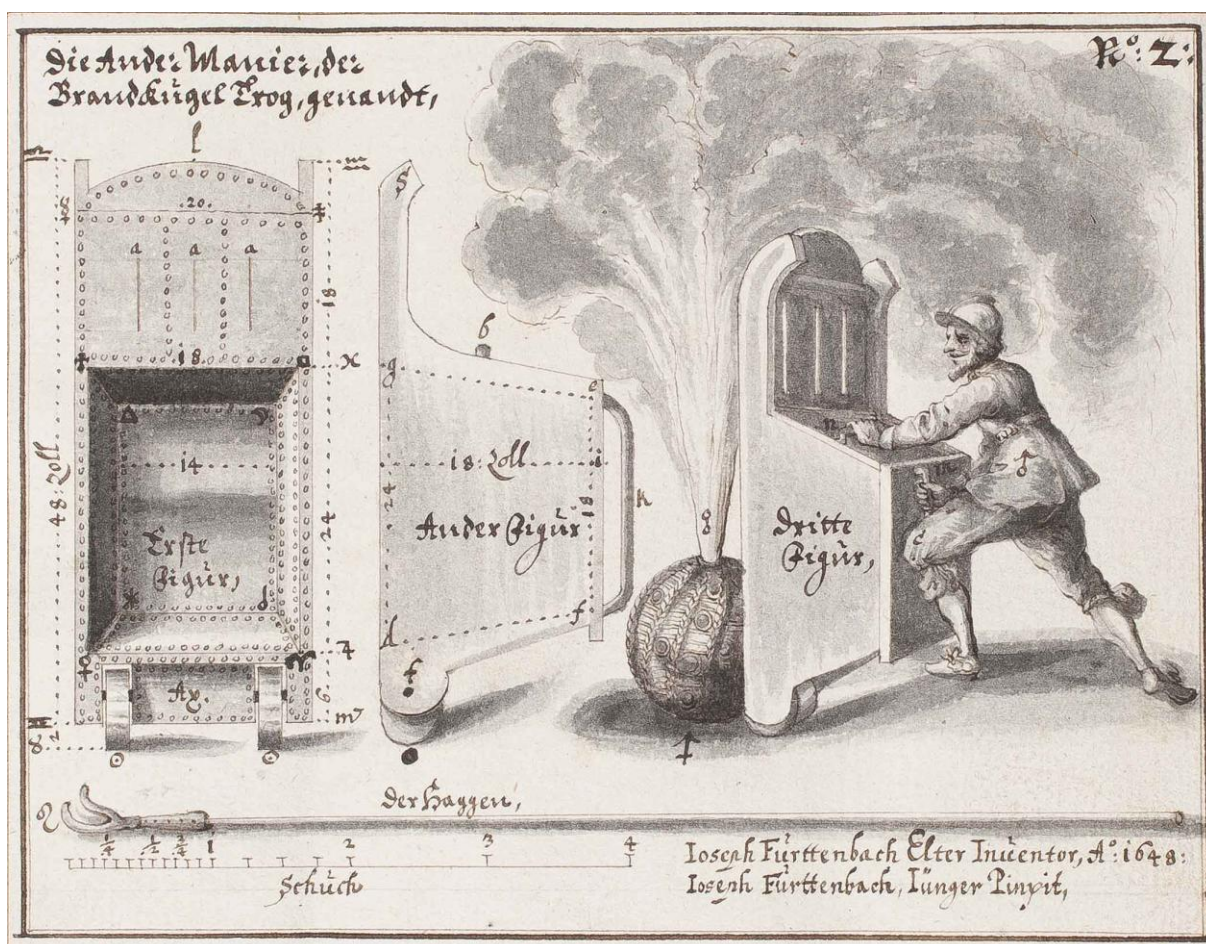 Die Ander Manier, der
Brandkugel Trog, genandt,
No: 2:
l
m
.20.
a a a
18
.18.
x
48: Zoll
14
24
Erste
Figur,
d
4
Ax.
6
2
S
6
g
e
18: Zoll
i
24
18
k
Ander Figur
d
f
n
m
8
Dritte
Figur,
der Haggen,
1/4 1/2 3/4 1 2 3 4
Schuch
Ioseph Furttenbach Elter Inventor, Ao: 1648:
Ioseph Furttenbach, Iünger Pinxit,